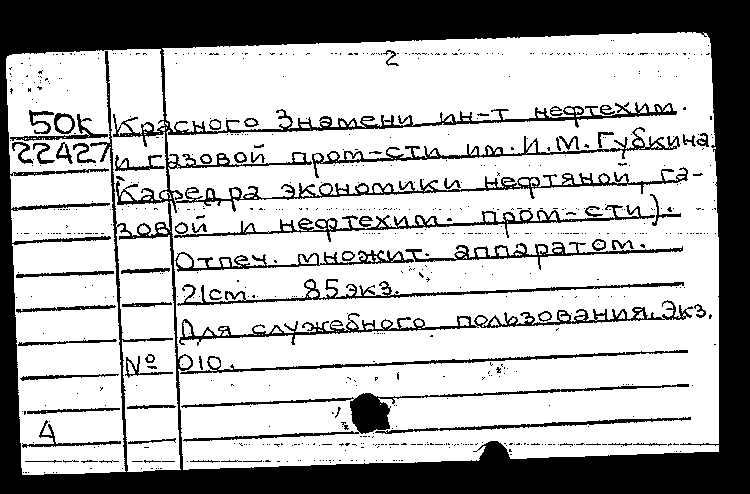 2
50к Красного Знамени ин-т нефтехим.
22427 и газовой пром-сти им. И.М. Губкина.
Кафедра экономики нефтяной, га-
зовой и нефтехим. пром-сти).
Отпеч. множит. аппаратом.
21см. 85 экз.
Для служебного пользования. Экз.
№ 010.
Д